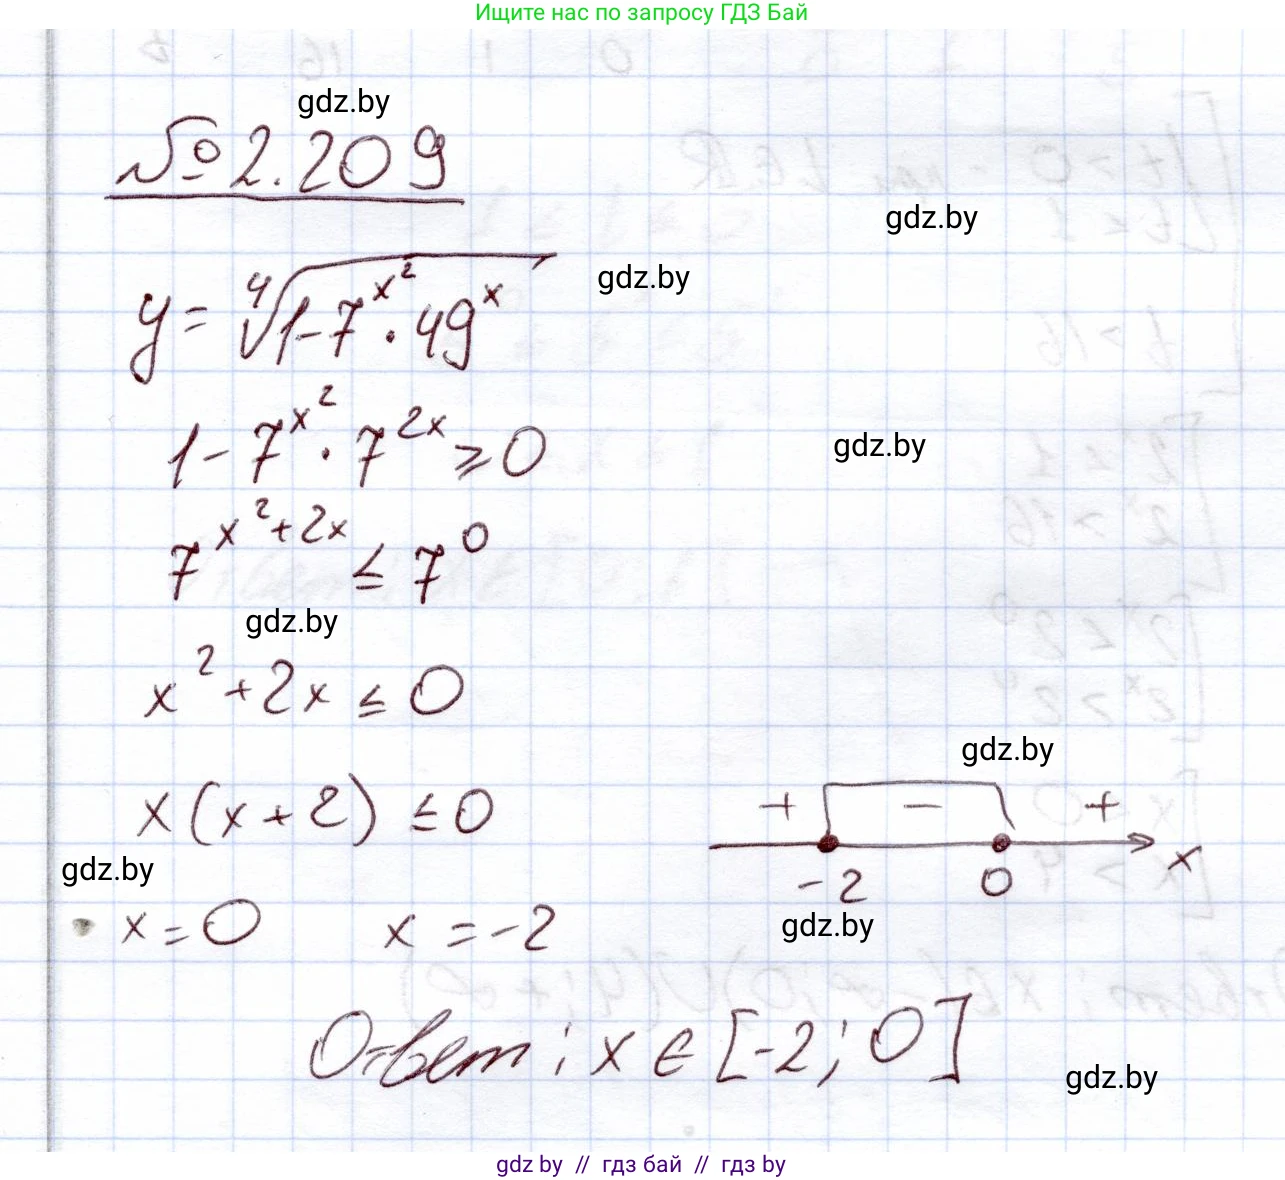 Ищите нас по запросу ГДЗ Бай
gdz.by
№ 2.209
gdz.by
gdz.by
y = ∜(1-7^(x²) · 49^x)
1 - 7^(x²) · 7^(2x) ⩾ 0
gdz.by
7^(x²+2x) ≤ 7^0
gdz.by
x² + 2x ≤ 0
gdz.by
x (x + 2) ≤ 0
+ - +
-2 0 x
gdz.by
x = 0 x = -2
gdz.by
Ответ: x ∈ [-2; 0]
gdz.by
gdz by // гдз бай // гдз by